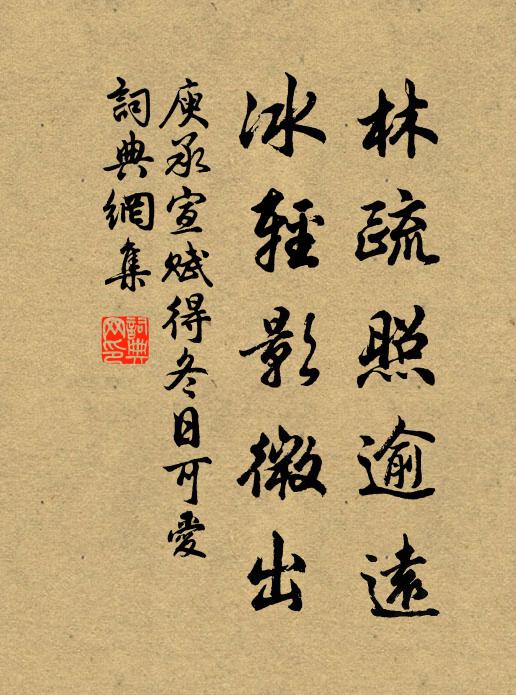 林疏照逾遠
冰輕影微出
庾承宣賦得冬日可愛
詞典網集
詞典
网印